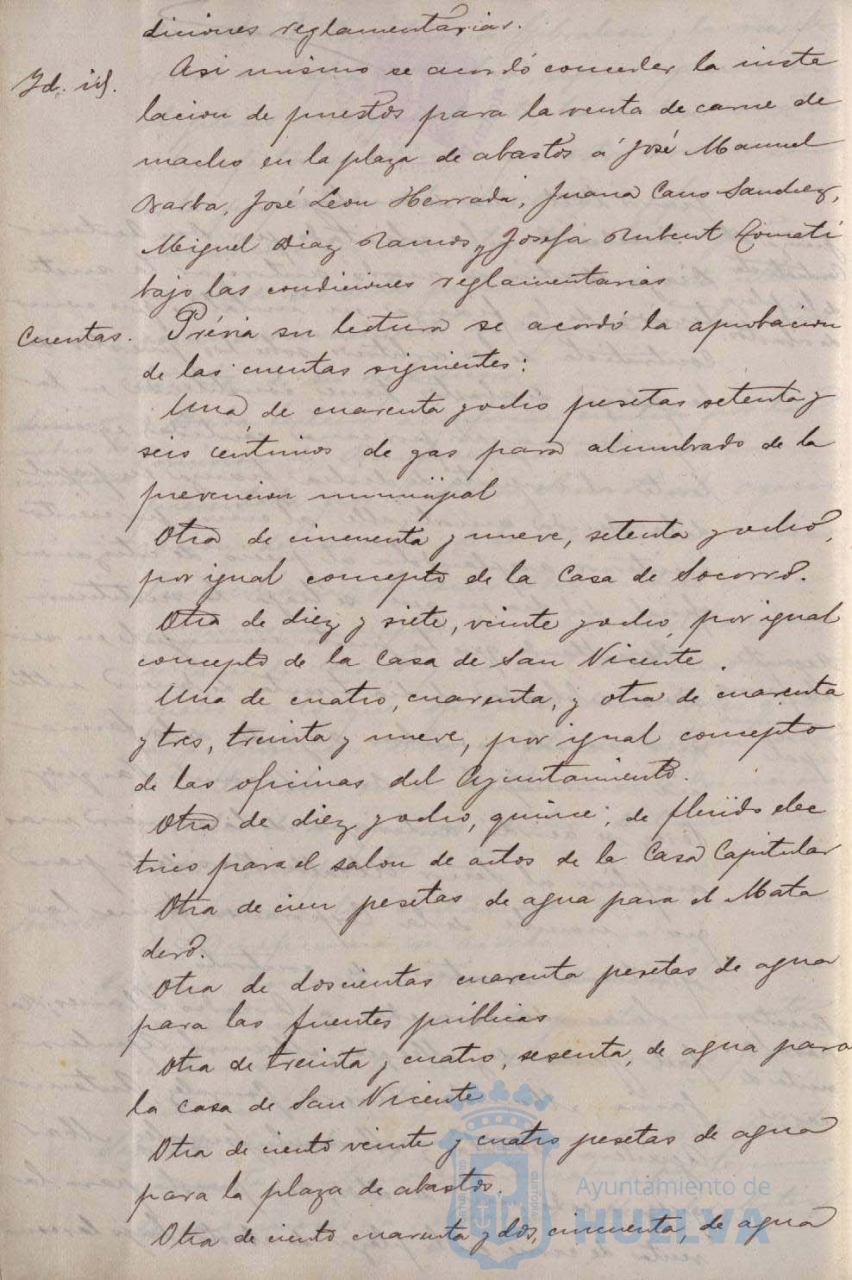 diciones reglamentarias.
Id. id. Asi mismo se acordó conceder la insta
lacion de puestos para la venta de carne de
macho en la plaza de abastos á José Manuel
Barba, José Leon Herrada, Juana Cano Sanchez,
Miguel Diaz Ramos y Josefa Rubert
bajo las condiciones reglamentarias
Cuentas. Prévia su lectura se acordó la aprobacion
de las cuentas siguientes:
Una de cuarenta y ocho pesetas setenta y
seis céntimos de gas para alumbrado de la
prevencion municipal
Otra de cincuenta y nueve, setenta y ocho,
por igual concepto de la Casa de Socorro.
Otra de diez y siete, veinte y ocho, por igual
concepto de la Casa de San Vicente.
Una de cuatro, cuarenta, y otra de cuarenta
y tres, treinta y nueve, por igual concepto
de las oficinas del Ayuntamiento.
Otra de diez y ocho, quince; de fluido elec
trico para el salon de actos de la Casa Capitular
Otra de cien pesetas de agua para el Mata
dero.
Otra de doscientas cuarenta pesetas de agua
para las fuentes públicas
Otra de treinta y cuatro, sesenta, de agua para
la casa de San Vicente
Otra de ciento veinte y cuatro pesetas de agua
para la plaza de abastos.
Otra de ciento cuarenta y dos, cincuenta, de agua
Ayuntamiento de
HUELVA